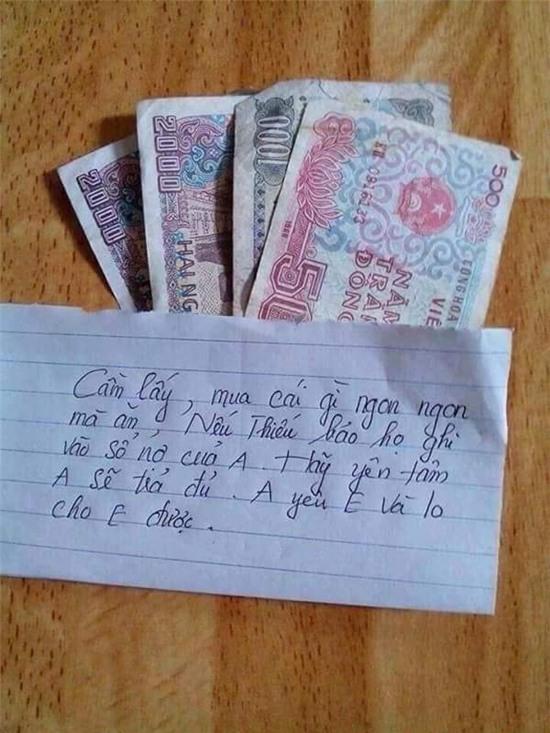 2000
2000
HAI NG
1000
500
CỘNG HÒA
VIỆ
KU 0916123
NĂM
TRĂM
ĐỒNG
1988
50
Cầm lấy, mua cái gì ngon ngon
mà ăn, Nếu Thiếu báo họ ghi
vào sổ nợ cuả A. Hãy yên tâm
A sẽ trả đủ. A yêu E và lo
cho E được.